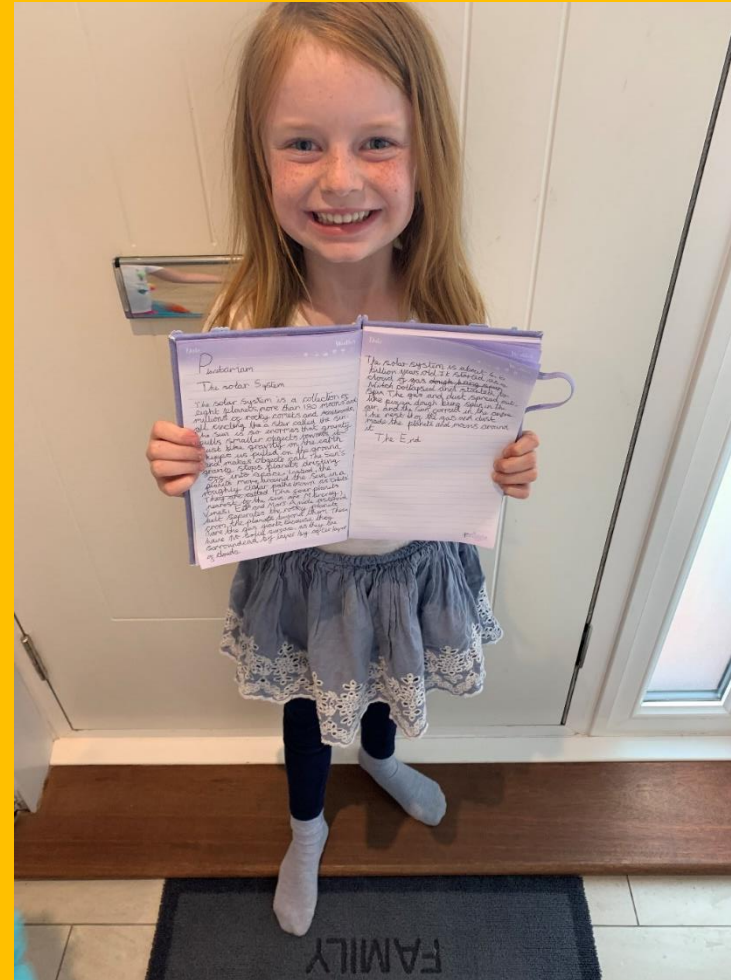 The solar System
The solar system is a collection of
eight planets, more than 180 moons and
millions of rocky comets and
all circling like a star called the sun
The sun is so enormos that gravity
pulls smaller objects towards it
just like gravity on the earth
is pulled on the ground
and makes objects fall. The Sun's
gravity stops planets drifting
off into space, insted, the
planets move around the Sun in a
roughly path known as orbits
They are called The four planets
nearest to the sun are Mercury,
Earth and Mars A
belt separates the rocky planets
from the planets beyond them. These
are the gas giants because they
have no solid surface, as they are
surrounded by layer by after layer
of clouds.
The solar system is about
billion years old. It started as a
cloud of gas
Which collapsed and started to
spin The gas and dust spread out
like pizza dough being spun in the
air, and the Sun formed in the centre
The rest of the gas and dust
made the planets and moons around
it
The End
FAMILY